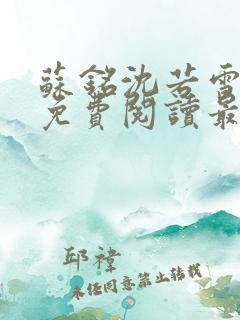 蘇銘沈若雪
免費閱讀最
邱禕
未经同意禁止转载